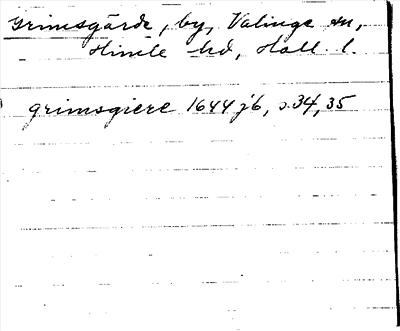 Grimsgärde, by, Valinge sn,
Himle hd, Hall. l.
grimsgiere 1644 jb, s. 34, 35